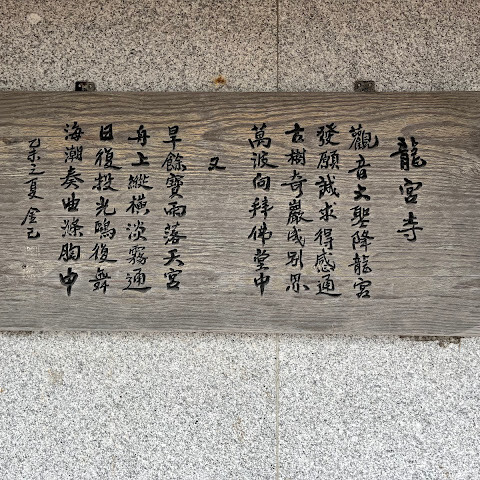 龍宮寺
觀音大聖降龍宮
發願誠求得感通
古樹奇巖成別界
萬波向拜佛堂中
又
旱餘寶雨落天宮
舟上縱橫淡霧通
日復投光鷗復舞
海潮奏曲滌胸中
乙未之夏 金